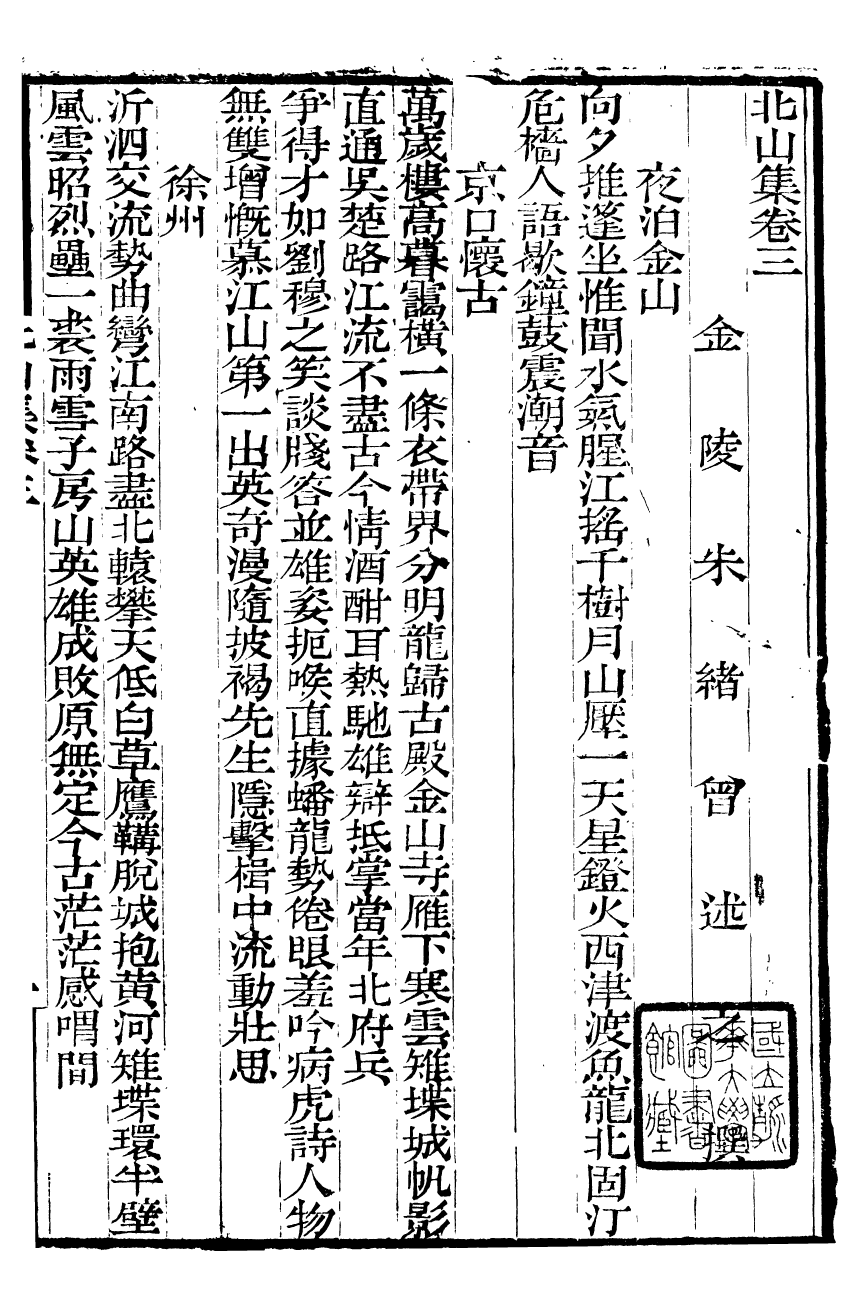 北山集卷三
金陵朱緒曾述
夜泊金山
向夕推蓬坐惟聞水氣腥江搖千樹月山壓一天星鐙火西津渡魚龍北固汀
危檣人語歇鐘鼓震潮音
京口懷古
萬歲樓高暮靄橫一條衣帶界分明龍歸古殿金山寺雁下寒雲雉堞城帆影
直通吳楚路江流不盡古今情酒酣耳熱馳雄辯抵掌當年北府兵
爭得才如劉穆之笑談牋答並雄姿扼喉直據蟠龍勢倦眼羞吟病虎詩人物
無雙增慨慕江山第一出英奇漫隨披褐先生隱擊楫中流動壯思
徐州
沂泗交流勢曲彎江南路盡北轅攀天低白草鷹鞲脫城抱黄河雉堞環半壁
風雲昭烈壘一裘雨雪子房山英雄成敗原無定今古茫茫感喟間
北山集卷三